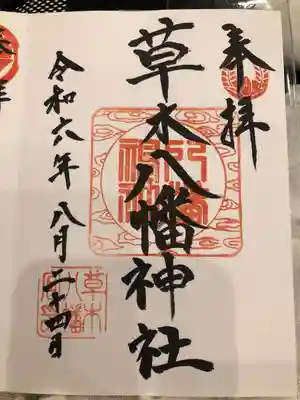 奉拝
草木八幡神社
令和六年八月二十四日